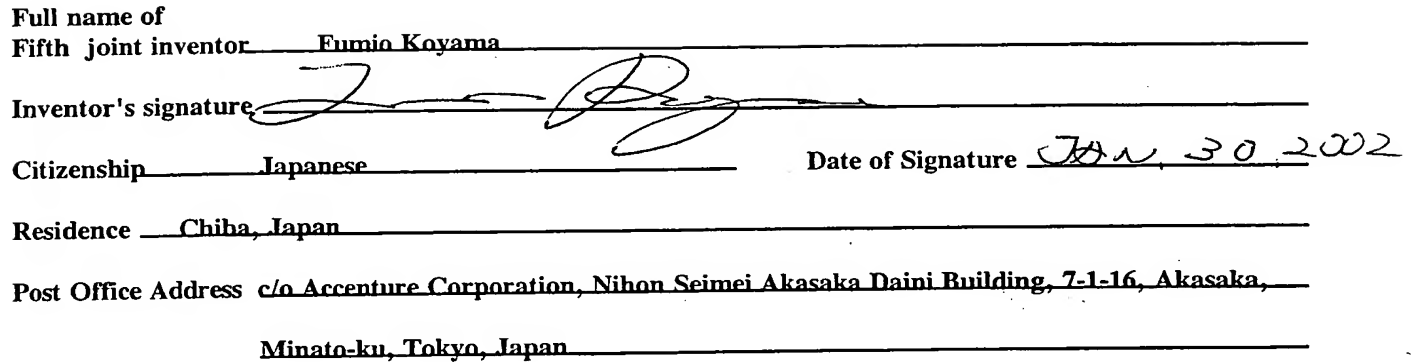 Full name of
Fifth joint inventor Fumio Koyama
Inventor's signature
Citizenship Japanese Date of Signature JAN, 30, 2002
Residence Chiba, Japan
Post Office Address c/o Accenture Corporation, Nihon Seimei Akasaka Daini Building, 7-1-16, Akasaka,
Minato-ku, Tokyo, Japan